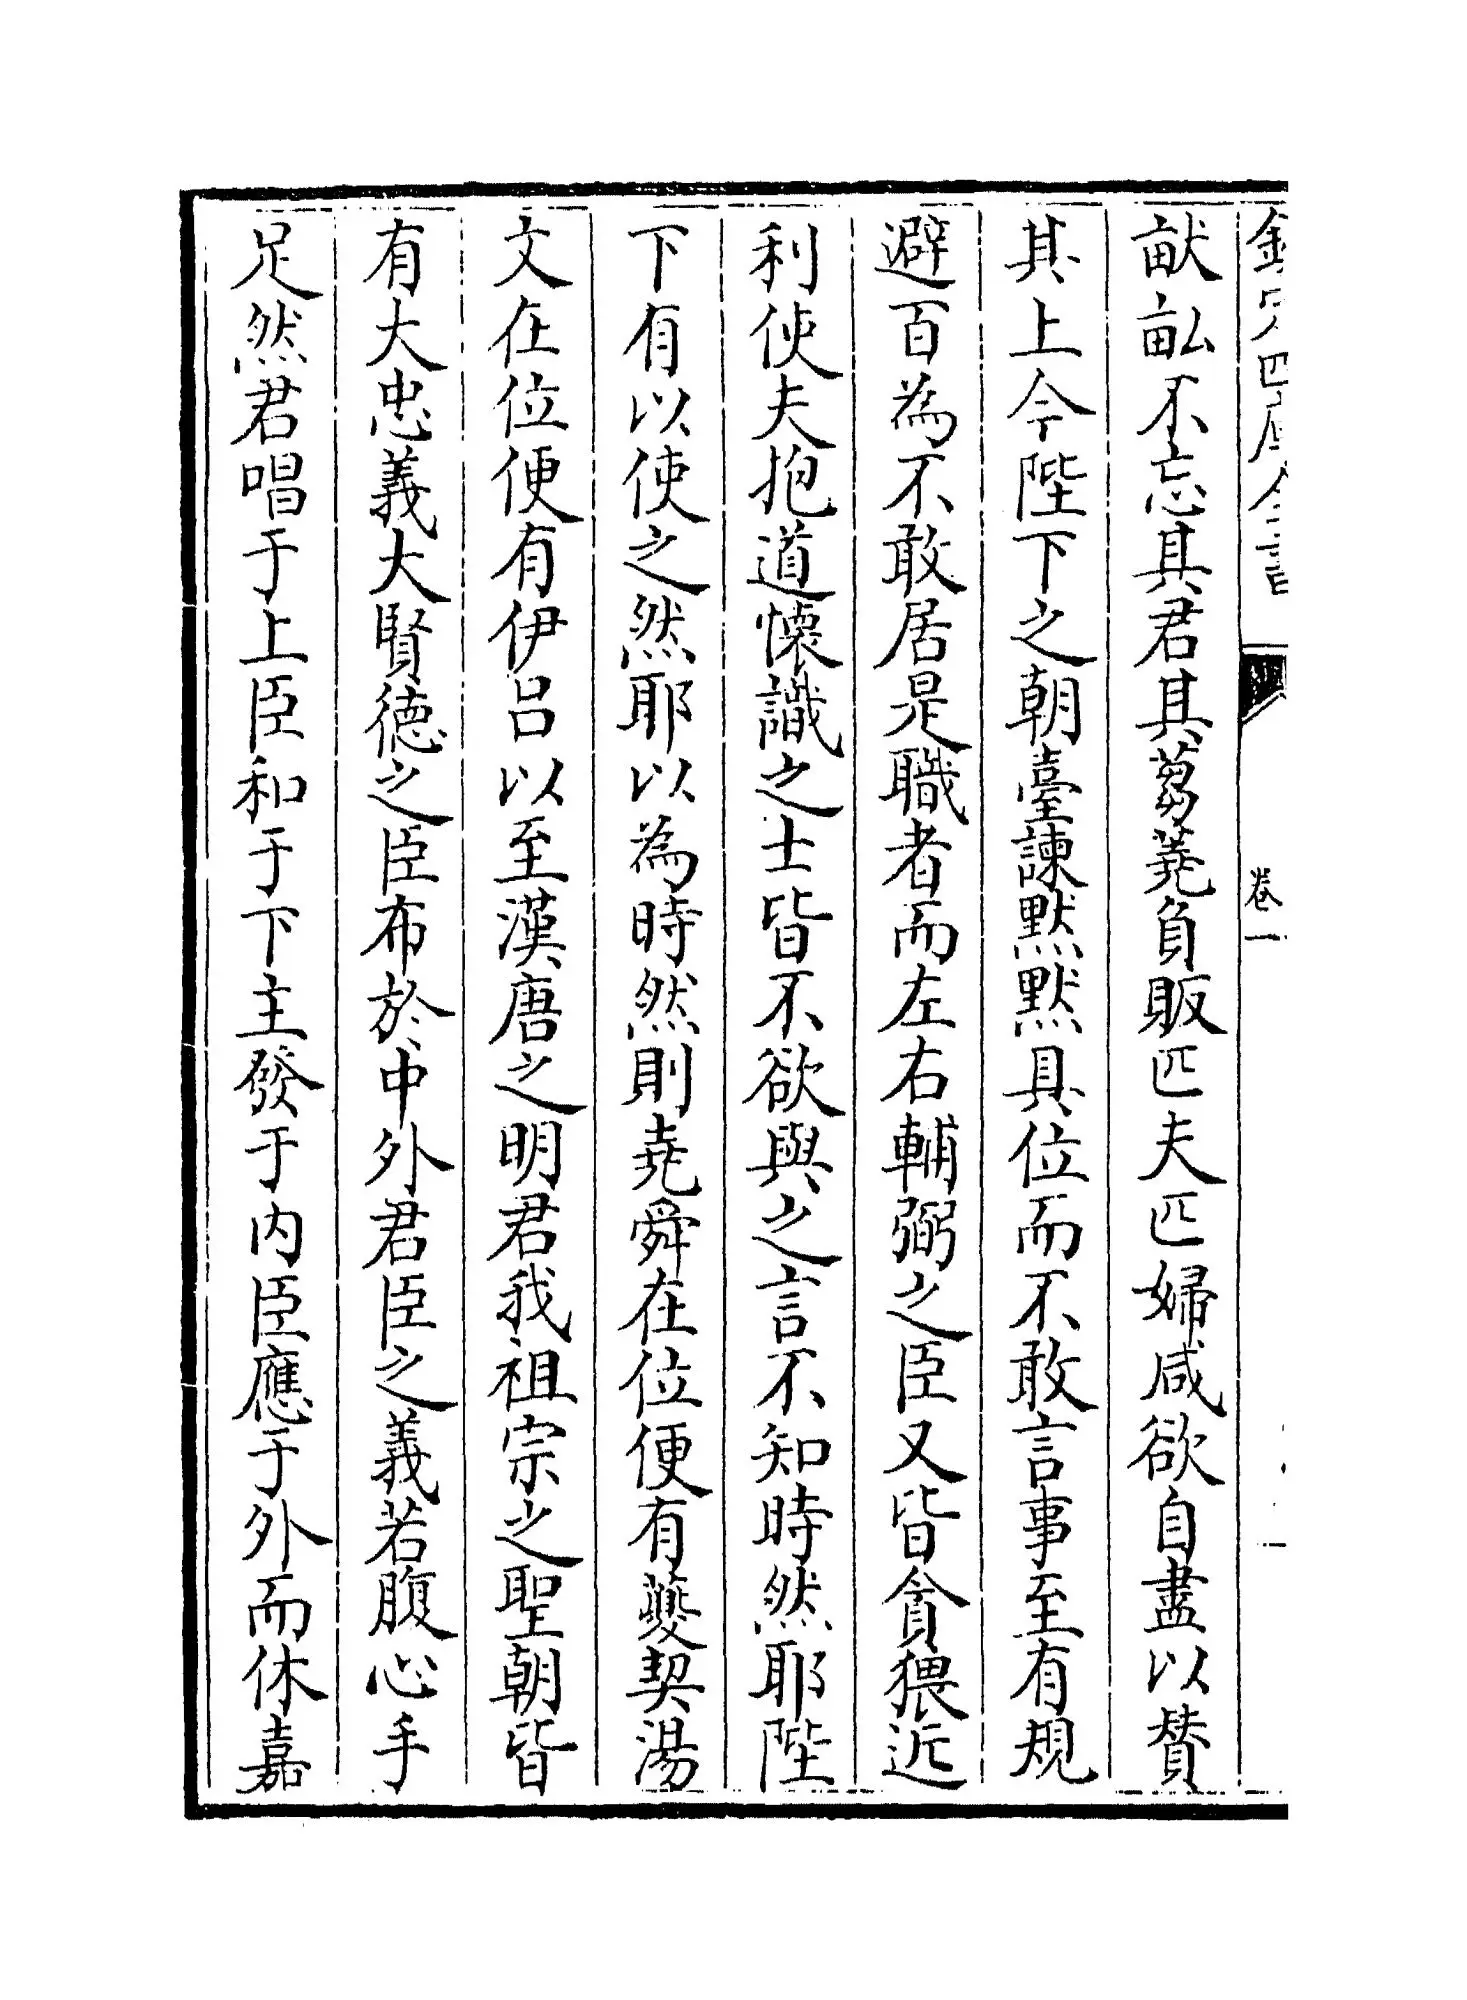 欽定四庫全書
卷一
畎畝不忘其君其芻蕘負販匹夫匹婦咸欲自盡以贊
其上今陛下之朝臺諫默默具位而不敢言事至有規
避百為不敢居是職者而左右輔弼之臣又皆貪猥近
利使夫抱道懷識之士皆不欲與之言不知時然耶陛
下有以使之然耶以為時然則堯舜在位便有夔契湯
文在位便有伊呂以至漢唐之明君我祖宗之聖朝皆
有大忠義大賢德之臣布於中外君臣之義若腹心手
足然君唱于上臣和于下主發于內臣應于外而休嘉